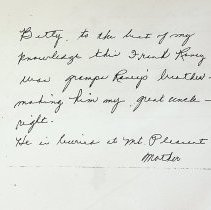 Betty, to the best of my
knowledge this Frank Raney
was grampa Raney's brother -
making him my great uncle -
right.
He is buried at Mt Pleasant
Mother